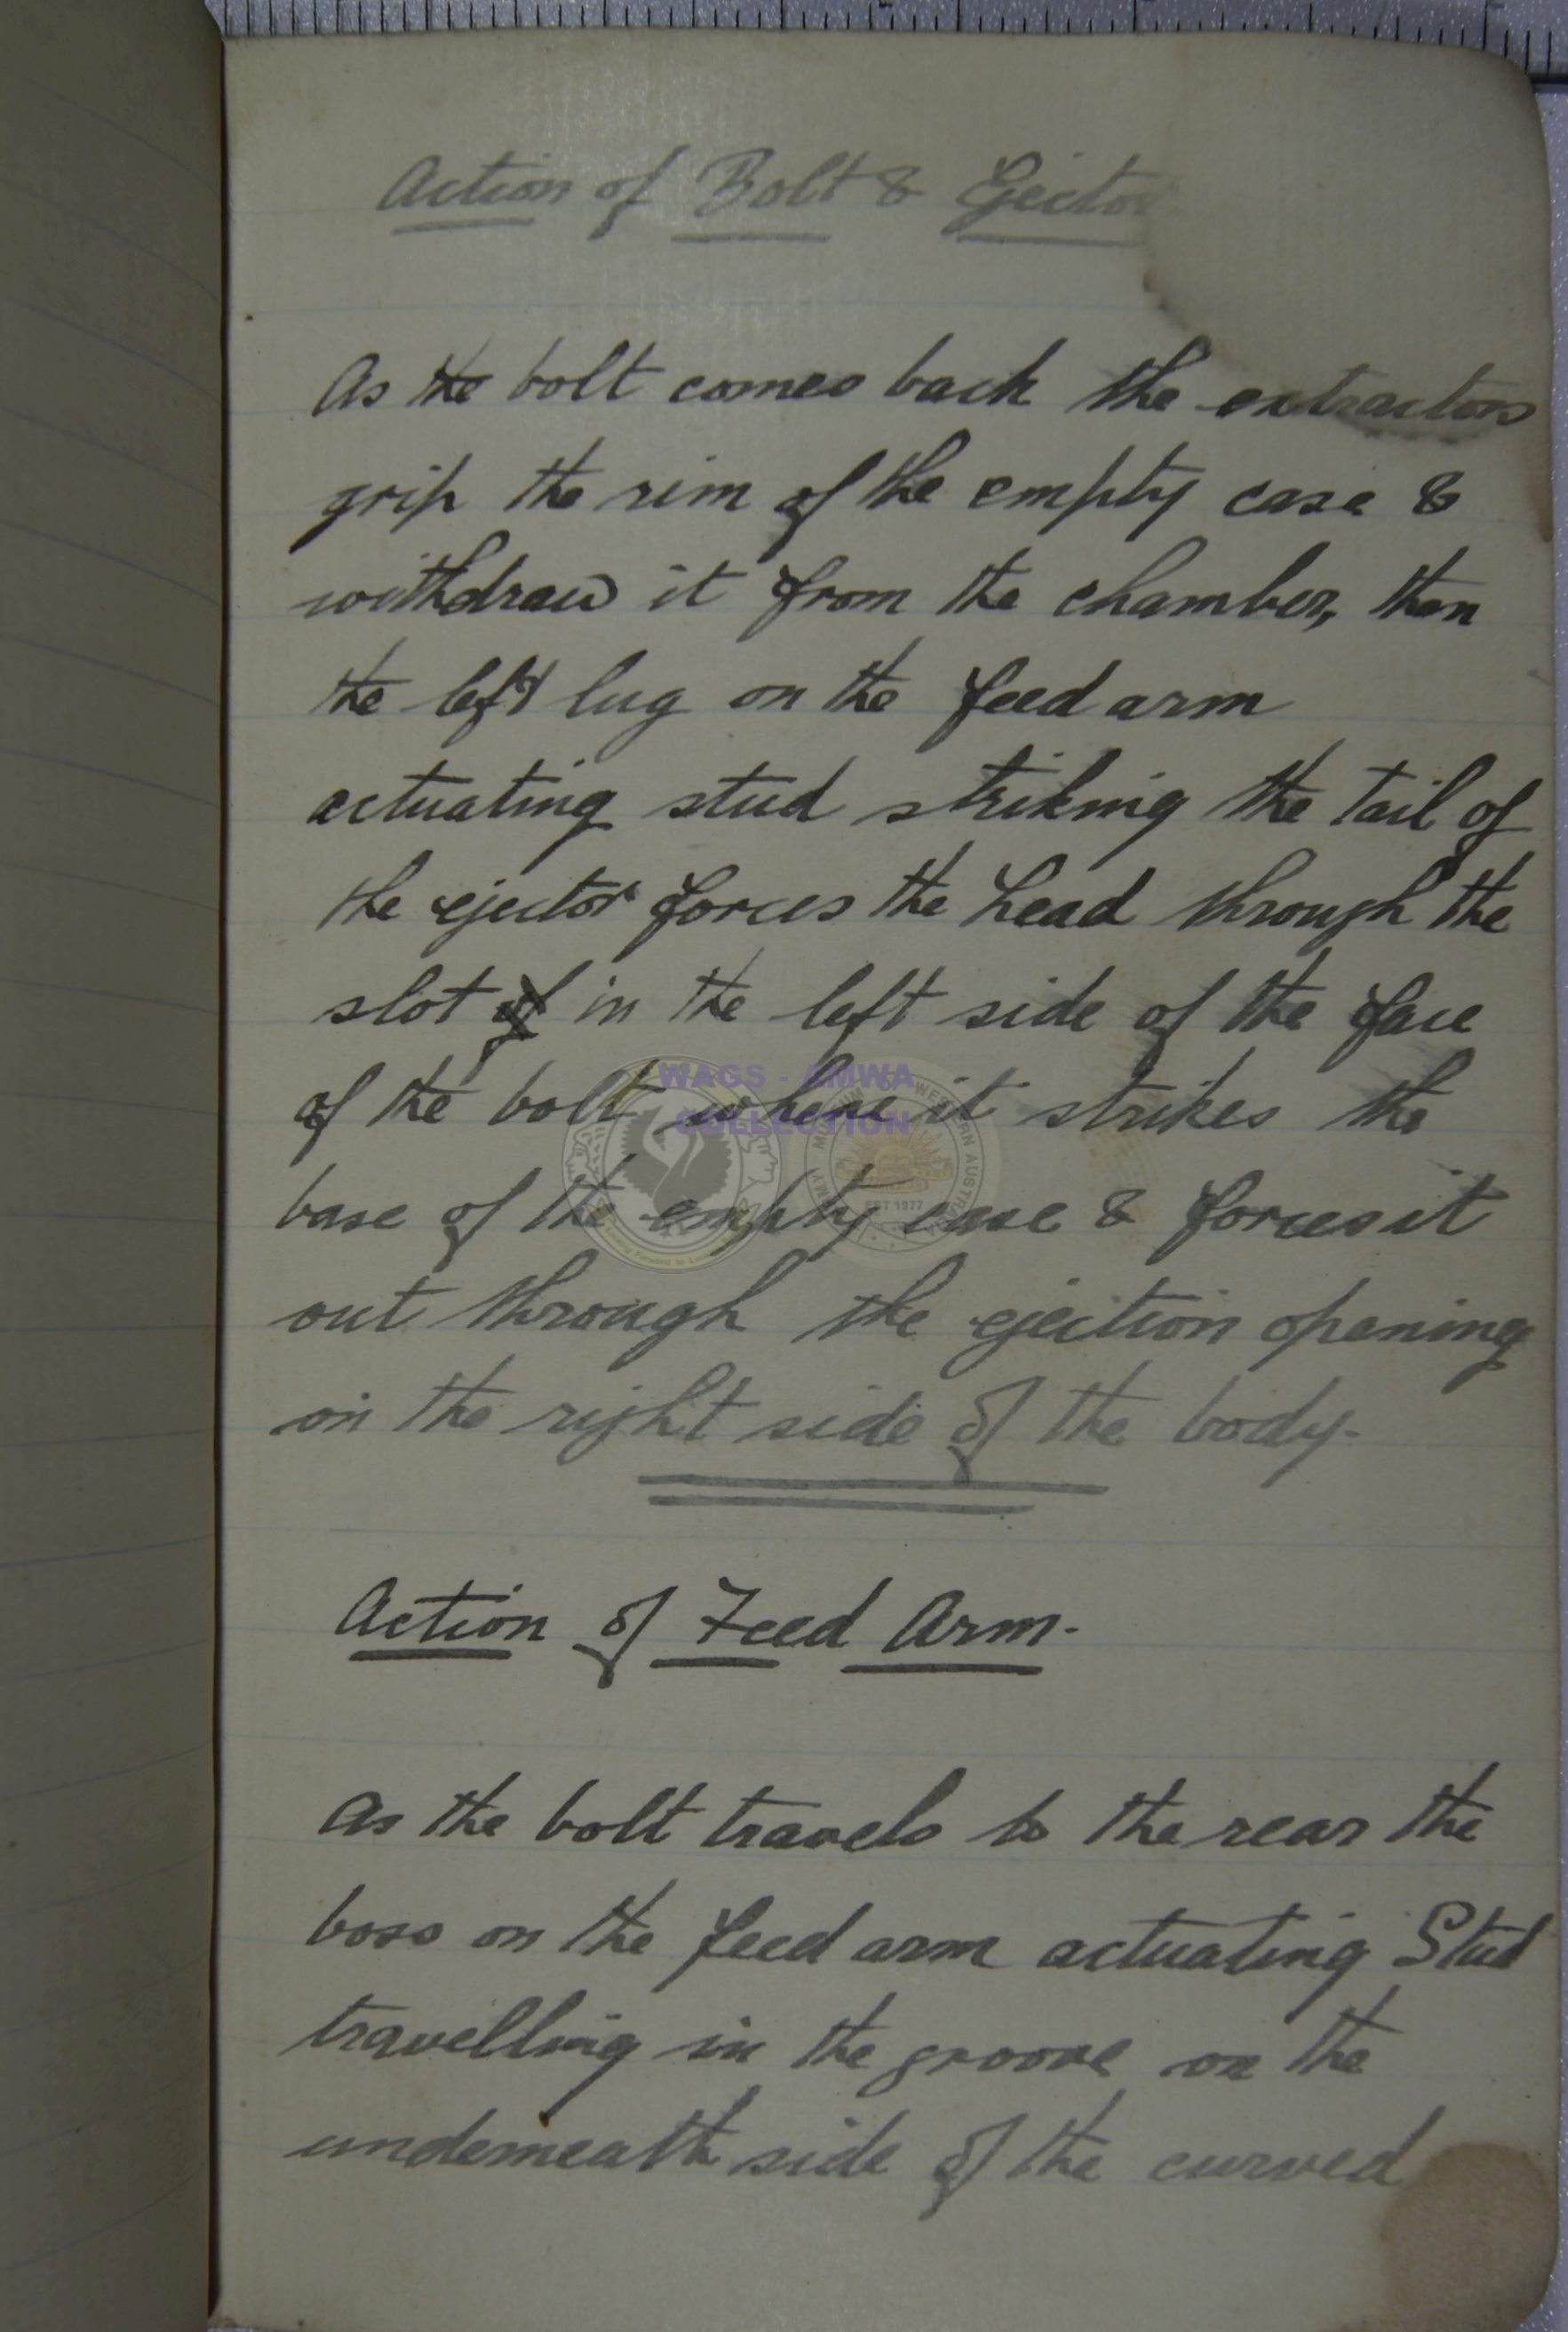 Action of Bolt & Ejector
As the bolt comes back the extractors
grip the rim of the empty case &
withdraw it from the chamber, then
the left lug on the feed arm
actuating stud striking the tail of
the ejector forces the head through the
slot of in the left side of the face
of the bolt where it strikes the
base of the empty case & forces it
out through the ejection opening
on the right side of the body.
Action of Feed Arm.
As the bolt travels to the rear the
boss on the feed arm actuating Stud
travelling in the groove on the
underneath side of the curved
WAGS - AMWA
COLLECTION
EST 1977